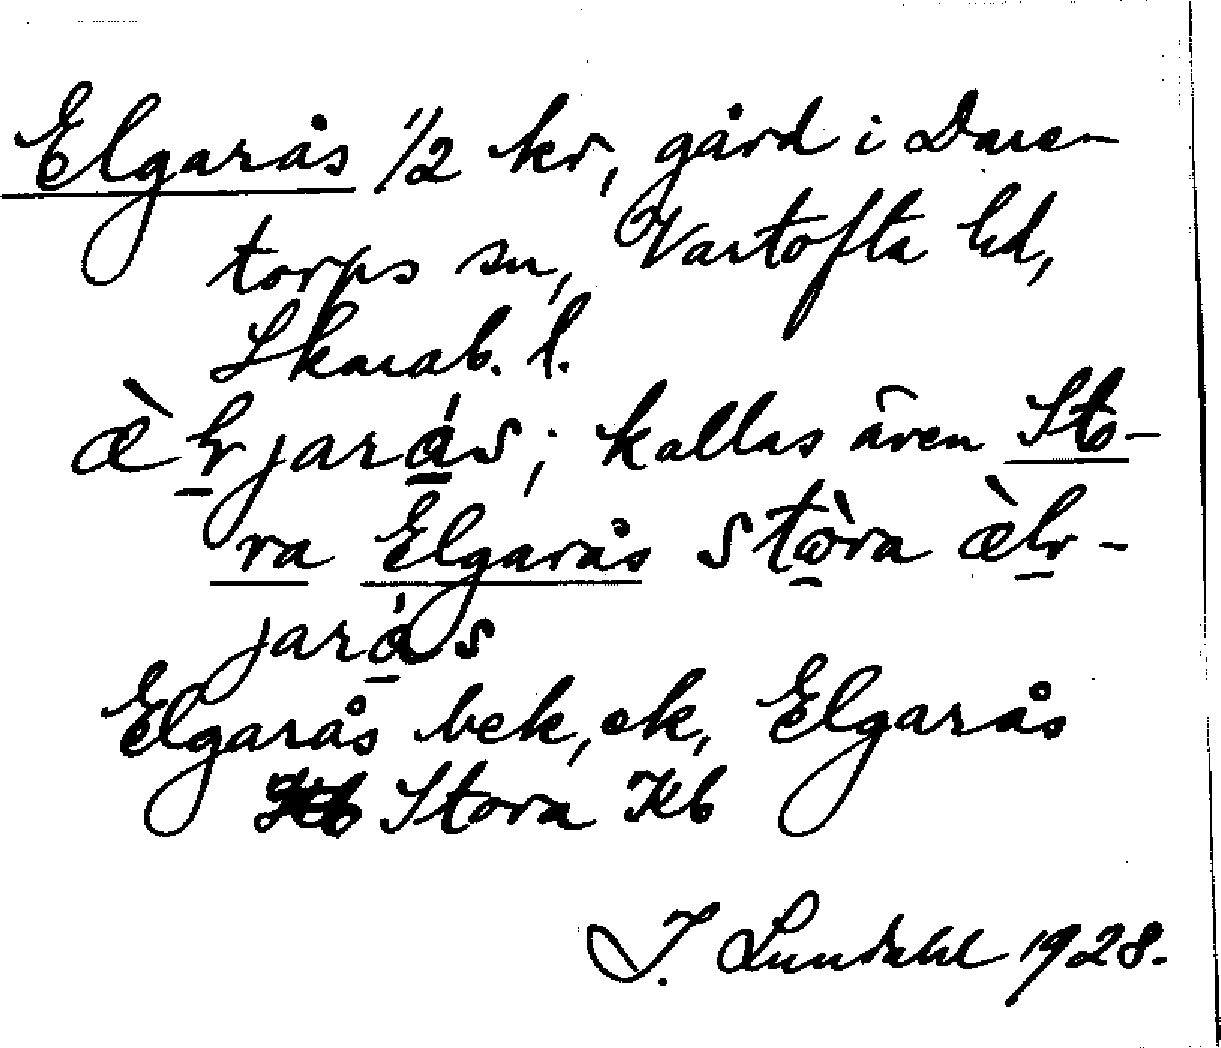 Elgarås 1/2 kr, gård i Dare-
torps sn, Vartofta hd,
Skarab. l.
æ̀lrjarás; kallas även Sto-
ra Elgarås stòra æ̀lr-
jarás
Elgarås bek, ek, Elgarås
Stora Kb
I. Lundahl 1928.